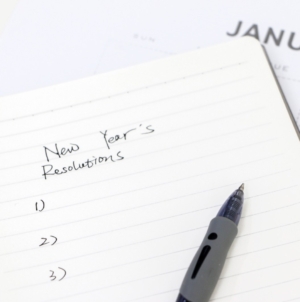 JANU
SUN
UE
New Year's
Resolutions
1)
2)
3)